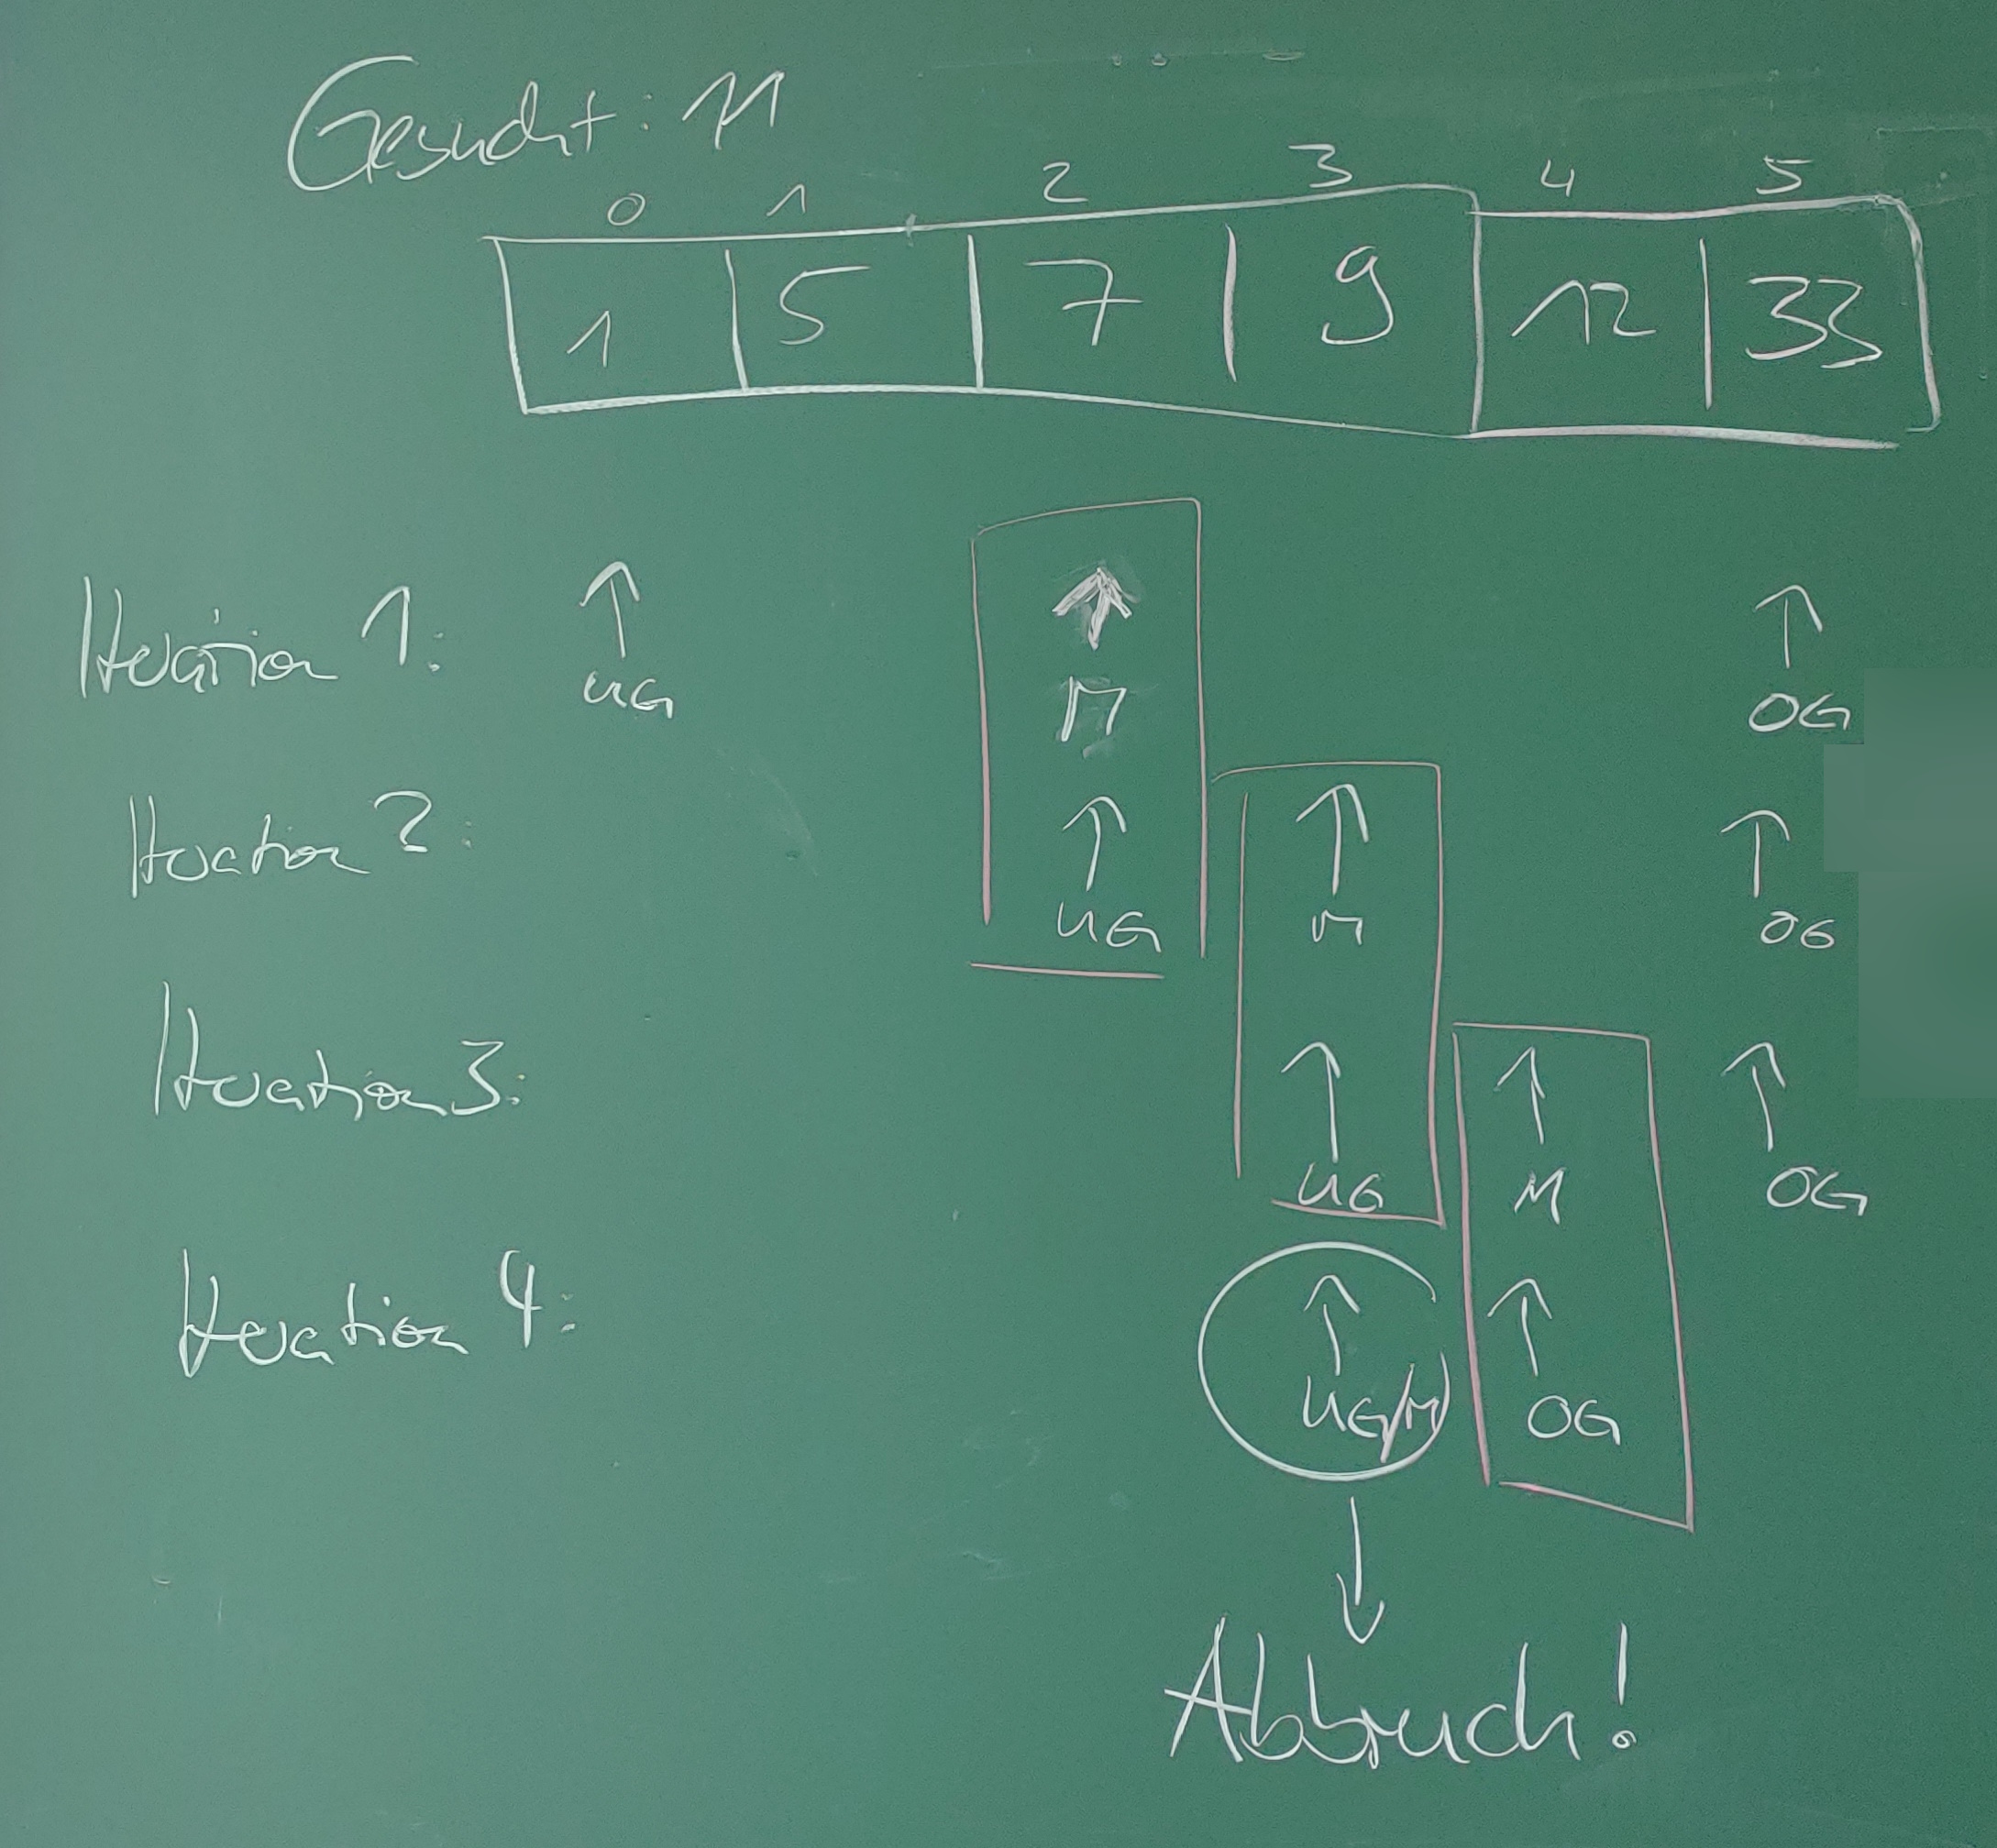 Gesucht: 11
0 1 2 3 4 5
1 5 7 9 12 33
Iteration 1: UG M OG
Iteration 2: UG M OG
Iteration 3: UG M OG
Iteration 4: UG/M OG
Abbruch!